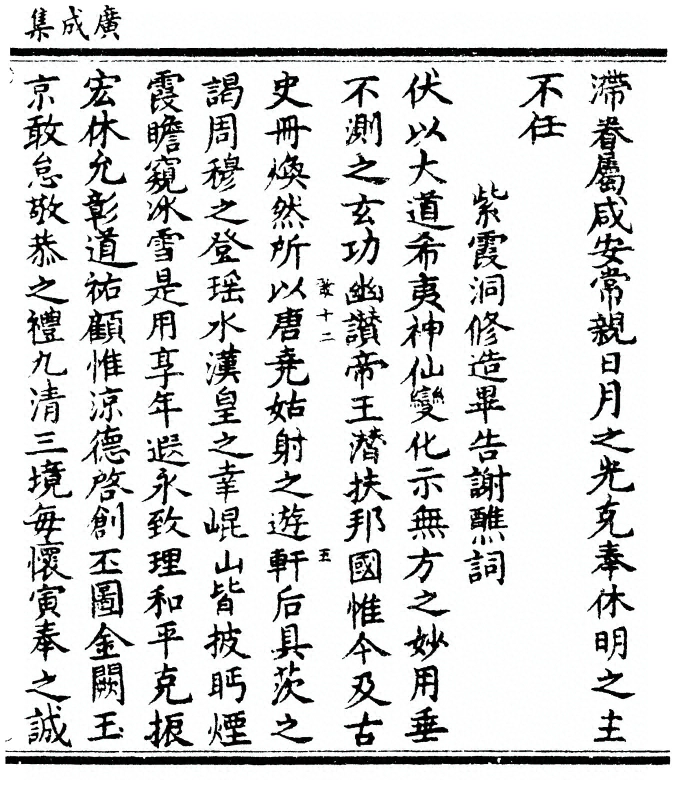 廣成集
滯眷屬咸安常親日月之光克奉休明之主
不任
紫霞洞修造畢告謝醮詞
伏以大道希夷神仙變化示無方之妙用垂
不測之玄功幽讃帝王潛扶邦國惟今及古
史冊煥然所以唐堯姑射之遊軒后具茨之
敢十二
五
謁周穆之登瑶水漢皇之幸崐山皆披眄煙
霞瞻窺冰雪是用享年遐永致理和平克振
宏休允彰道祐顧惟涼德啓創丕圖金闕玉
京敢怠敬恭之禮九清三境每懷寅奉之誠